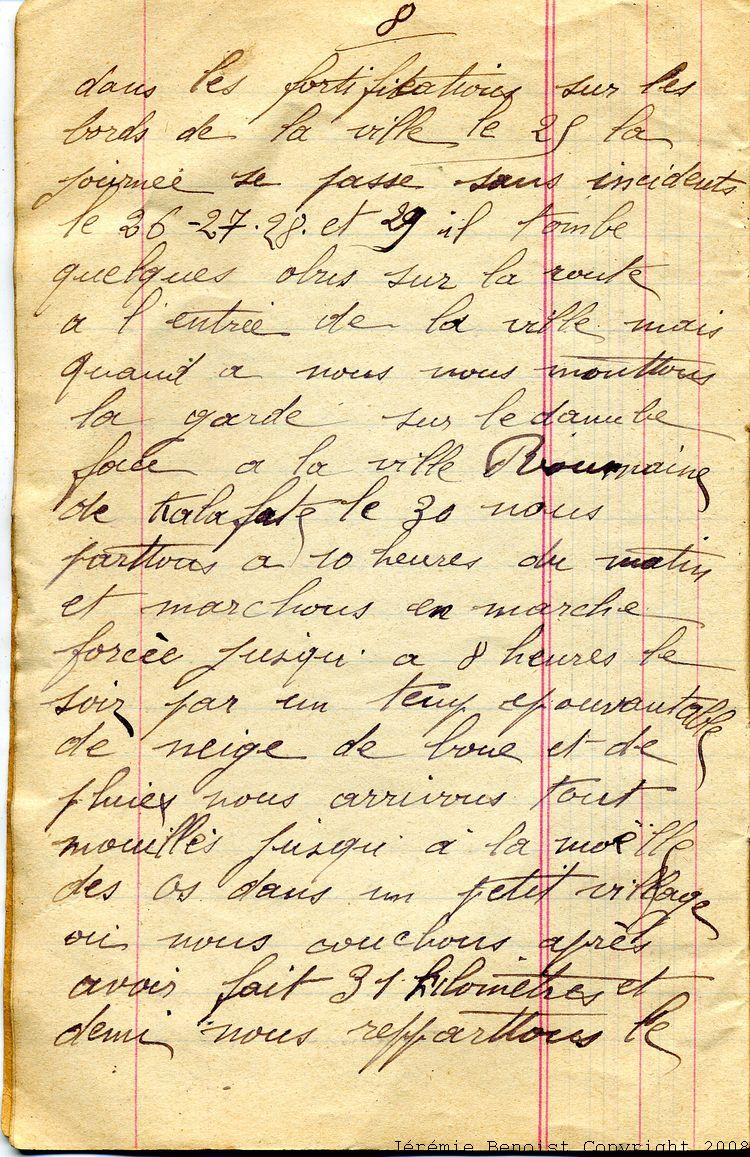 8
dans les fortifikations sur les
bords de la ville le 25 la
journee se passe sans incidents
le 26-27.28. et 29 il tombe
quelques obus sur la route
a l'entrée de la ville mais
quand a nous nous monttons
la garde sur le danube
face a la ville Roumaine
de Kalafate le 30 nous
parttons a 10 heures du matin
et marchons en marche
forcée jusqu'a 8 heures le
soir par un temp epouvantable
de neige de boue et de
pluies nous arrivons tout
mouillés jusqu'a la moëlle
des os dans un petit village
ou nous couchons après
avoir fait 31 kilomètres et
demi nous repparttons le
Jérémie Benoist Copyright 2008